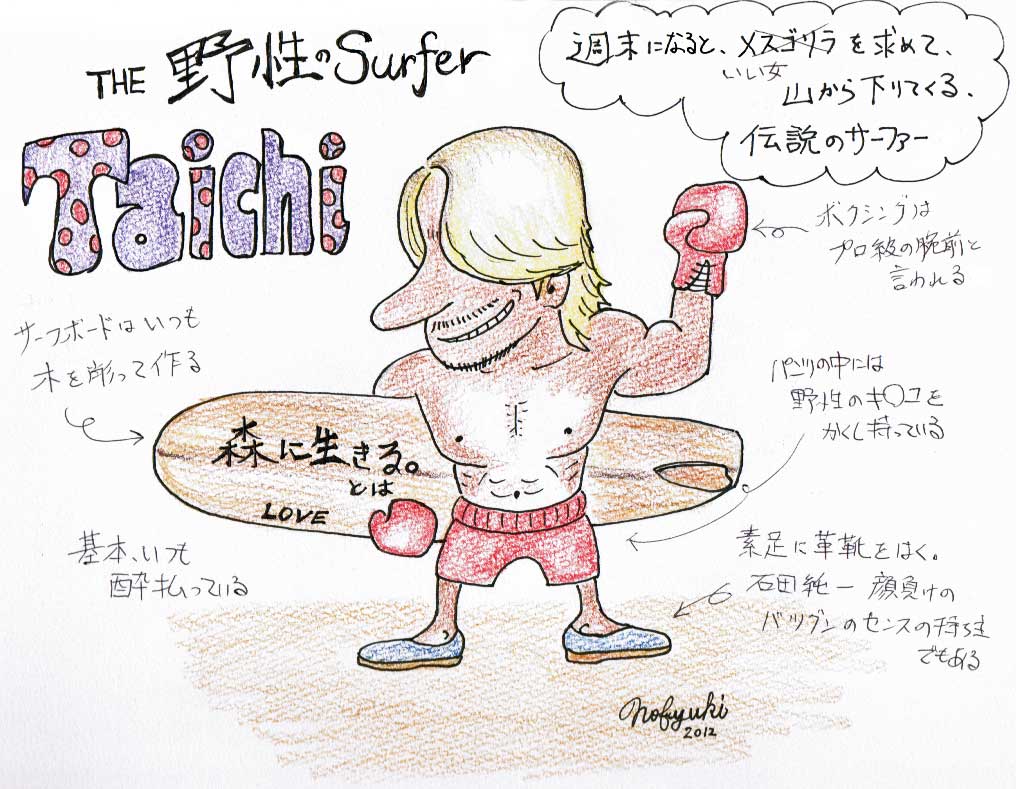 THE 野性のSurfer
Taichi
週末になると、メスゴリラを求めて、
いい女
山から下りてくる、
伝説のサーファー
ボクシングは
プロ級の腕前と
言われる
サーフボードはいつも
木を彫って作る
パンツの中には
野性のキ〇コを
かくし持っている
森に生きる。
とは
LOVE
基本、いつも
酔払っている
素足に革靴をはく。
石田純一顔負けの
バツグンのセンスの持ち主
でもある
Nobyuki
2012